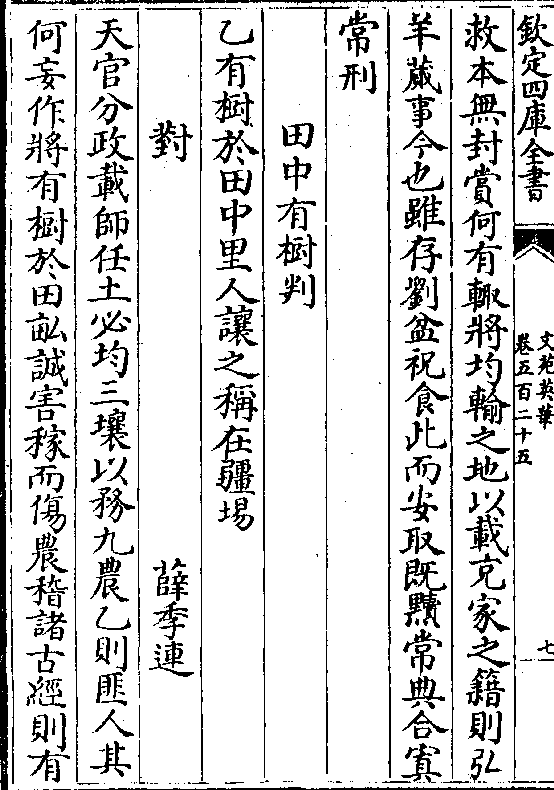 欽定四庫全書
文苑英華
卷五百二十五
七
救本無封賞何有輙將均輸之地以載克家之籍則弘
羊蕆事今也雖存劉盆祝食此而安取既黷常典合寘
常刑
田中有樹判
乙有樹於田中里人讓之稱在疆埸
對
薛季連
天官分政載師任土必均三壤以務九農乙則匪人其
何妄作將有樹於田畝誠害稼而傷農稽諸古經則有